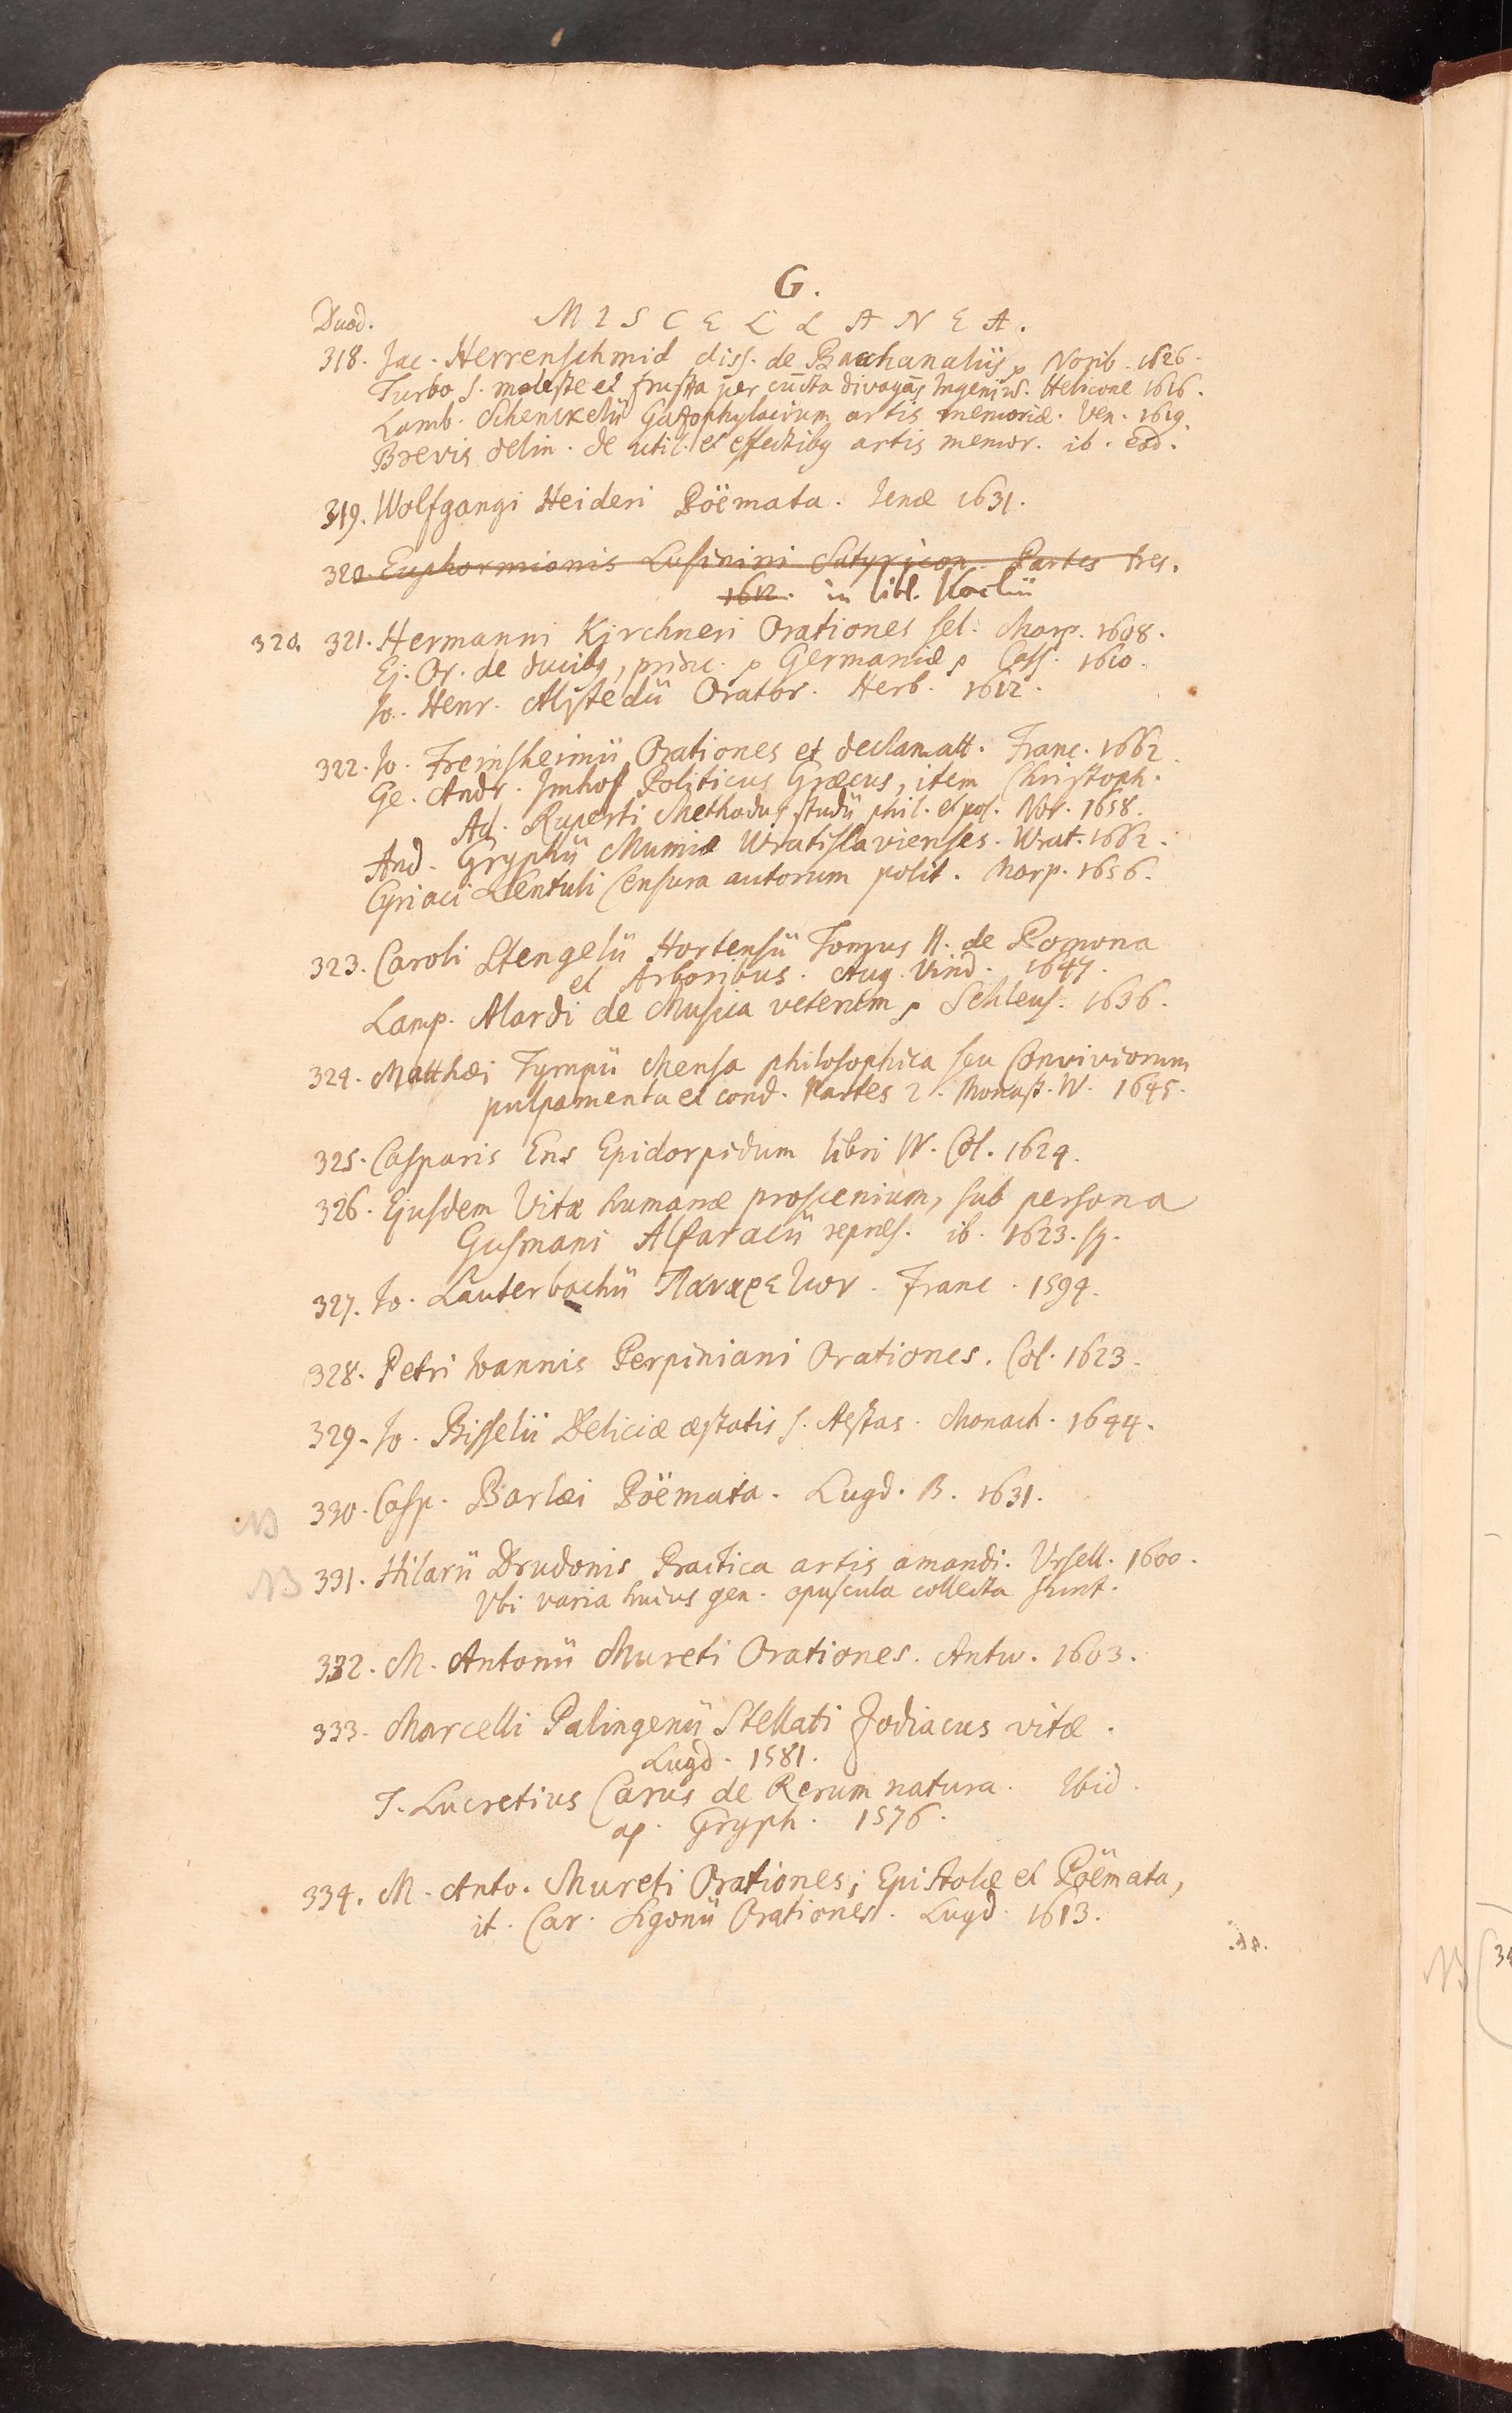 G.
Duod. MISCELLANEA.
318. Jac. Herrenschmid diss. de Bacchanaliis. Norib. 1626.
Turbo, s. moleste et frustra per cūcta divagās Ingeniū. Helicone 1616.
Lamb. Schenckelii Gazophylacium artis memoriæ. Ven. 1619.
Brevis delin. de util. et effectibꝫ artis memor. ib. eod.
319. Wolfgangi Heideri Poëmata. Jenæ 1631.
320. Euphormionis Lusinini Satyricon. Partes tres.
1612. in bibl. Kochii
320. 321. Hermanni Kirchneri Orationes sel. Marp. 1608.
Ej. Or. de ducibꝫ, princ. Germaniæ Cass. 1610.
Jo. Henr. Alstedii Orator. Herb. 1612.
322. Jo. Freinshemii Orationes et declamatt. Franc. 1662.
Ge. Andr. Imhof Politicus Græcus, item Christoph.
Ad. Ruperti Methodus studii phil. et pol. Nor. 1658.
And. Gryphii Mumiæ Wratislavienses. Wrat. 1662.
Cyriaci Lentuli Censura autorum polit. Marp. 1656.
323. Caroli Stengelii Hortensii Tomus II. de Pomona
et Arboribus. Aug. Vind. 1647.
Lamp. Alardi de Musica veterum Schleus. 1636.
324. Matthæi Tympii Mensa philosophica seu Conviviorum
pulpamenta et cond. Partes 2. Monast. W. 1645.
325. Casparis Ens Epidorpidum libri IV. Col. 1624.
326. Ejusdem Vitæ humanæ proscenium, sub persona
Gusmani Alfaracii repræs. ib. 1623. sq.
327. Jo. Lauterbachii Franc. 1594.
328. Petri Joannis Perpiniani Orationes. Col. 1623.
329. Jo. Bisselii Deliciæ æstatis s. Aestas. Monach. 1644.
NB 330. Casp. Barlæi Poëmata. Lugd. B. 1631.
NB 331. Hilarii Drudonis Practica artis amandi. Ursell. 1600.
Vbi varia huius gen. opuscula collecta sunt.
332. M. Antonii Mureti Orationes. Antw. 1603.
333. Marcelli Palingenii Stellati Zodiacus vitæ.
Lugd. 1581.
T. Lucretius Carus de Rerum natura. Ibid.
ap. Gryph. 1576.
334. M. Anto. Mureti Orationes, Epistolæ et Poëmata,
it. Car. Sigonii Orationes. Lugd. 1613.
NB 34